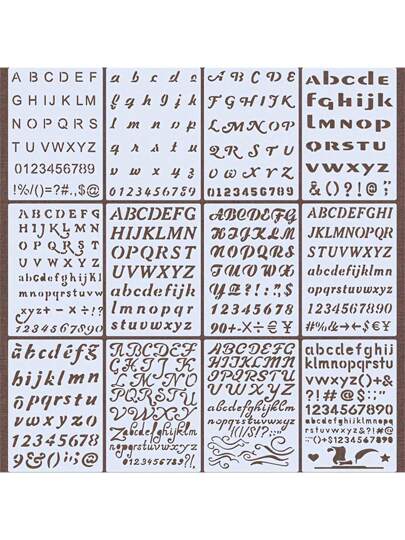 A B C D E F
G H I J K L M
N O P Q R S
T U V W X Y Z
0123456789
!%/()=?#.,$@
a b c d e
f g h i j k
l m n o p
q r s t u
v w x y z
0123456789
A B C D E
F G H I J K
L M N O P
Q R S T U
V W X Y Z
0123456789
abcde
fghijk
lmnop
qrstu
vwxyz
&()?!@;
ABCDEFG
HIJKLMN
OPQRST
UVWXYZ
abcdefghijkl
mnopqrstuvw
xyz+-×÷!?
01234567890
ABCDEFG
HIJKLMN
OPQRST
UVWXYZ
abcdefghijk
lmnopqrst
uvwxyz
0123456789
ABCDEFG
HIJKLMN
OPQRS
TUVWX
YZ?!:;,$
12345678
90+-×÷€¥
ABCDEFGHI
JKLMNOPQR
STUVWXYZ
abcdefghi
jklmnopqr
stuvwxyz
0123456789
#%&→←$€¥
abcdefg
hijklmn
opqrstu
vwxyz0
123456789
&@():;!?
ABCDEFG
HIJKLMN
OPQRSTU
VWXYZ
abcdefghijk
lmnopqrst
uvwxyz
0123456789?!
ABCDEFGH
IJKLMNOP
QRSTU
VWXYZ
abcdefghijklm
nopqrstuvwxyz
abcdefghijk
lmnopqrstu
vwxyz()+&
!?#@$:;"
1234567890
abcdefghijklmn
opqrstuvwxyz&#
:;()+$1234567890!?@